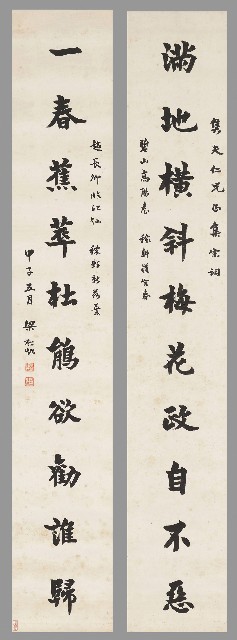 滿地橫斜梅花政自不惡
一春蕉萃杜鵑欲勸誰歸
雋天仁兄正集宋詞
碧山高陽臺 稼軒漢宮春
趙長卿臨江仙 稼軒新荷葉
甲子五月